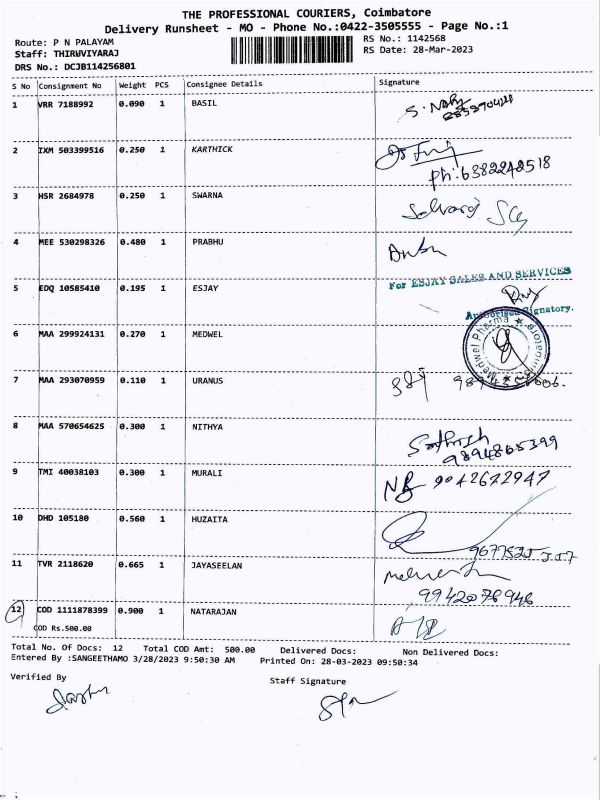 THE PROFESSIONAL COURIERS, Coimbatore
Delivery Runsheet - MO - Phone No.:0422-3505555 - Page No.:1
Route: P N PALAYAM
RS No.: 1142568
Staff: THIRWVIYARAJ
RS Date: 28-Mar-2023
DRS No.: DCJB114256801
S No Consignment No Weight PCS Consignee Details Signature
1 VRR 7188992 0.090 1 BASIL
2 IXM 503399516 0.250 1 KARTHICK
Ph: 6382242518
3 HSR 2684978 0.250 1 SWARNA
Selvaraj
4 MEE 530298326 0.480 1 PRABHU
For ESJAY SALES AND SERVICES
5 EDQ 10585410 0.195 1 ESJAY
Authorised Signatory.
6 MAA 299924131 0.270 1 MEDWEL
Medwel Pharma ★ Coimbatore ★
7 MAA 293070959 0.110 1 URANUS
8 MAA 570654625 0.300 1 NITHYA
Sathish
9894865399
9 TMI 40038103 0.300 1 MURALI
9042622947
10 DHD 105180 0.560 1 HUZAITA
11 TVR 2118620 0.665 1 JAYASEELAN
9942076946
12 COD 1111878399 0.900 1 NATARAJAN
COD Rs.500.00
Total No. Of Docs: 12 Total COD Amt: 500.00 Delivered Docs: Non Delivered Docs:
Entered By :SANGEETHAMO 3/28/2023 9:50:30 AM Printed On: 28-03-2023 09:50:34
Verified By
Staff Signature